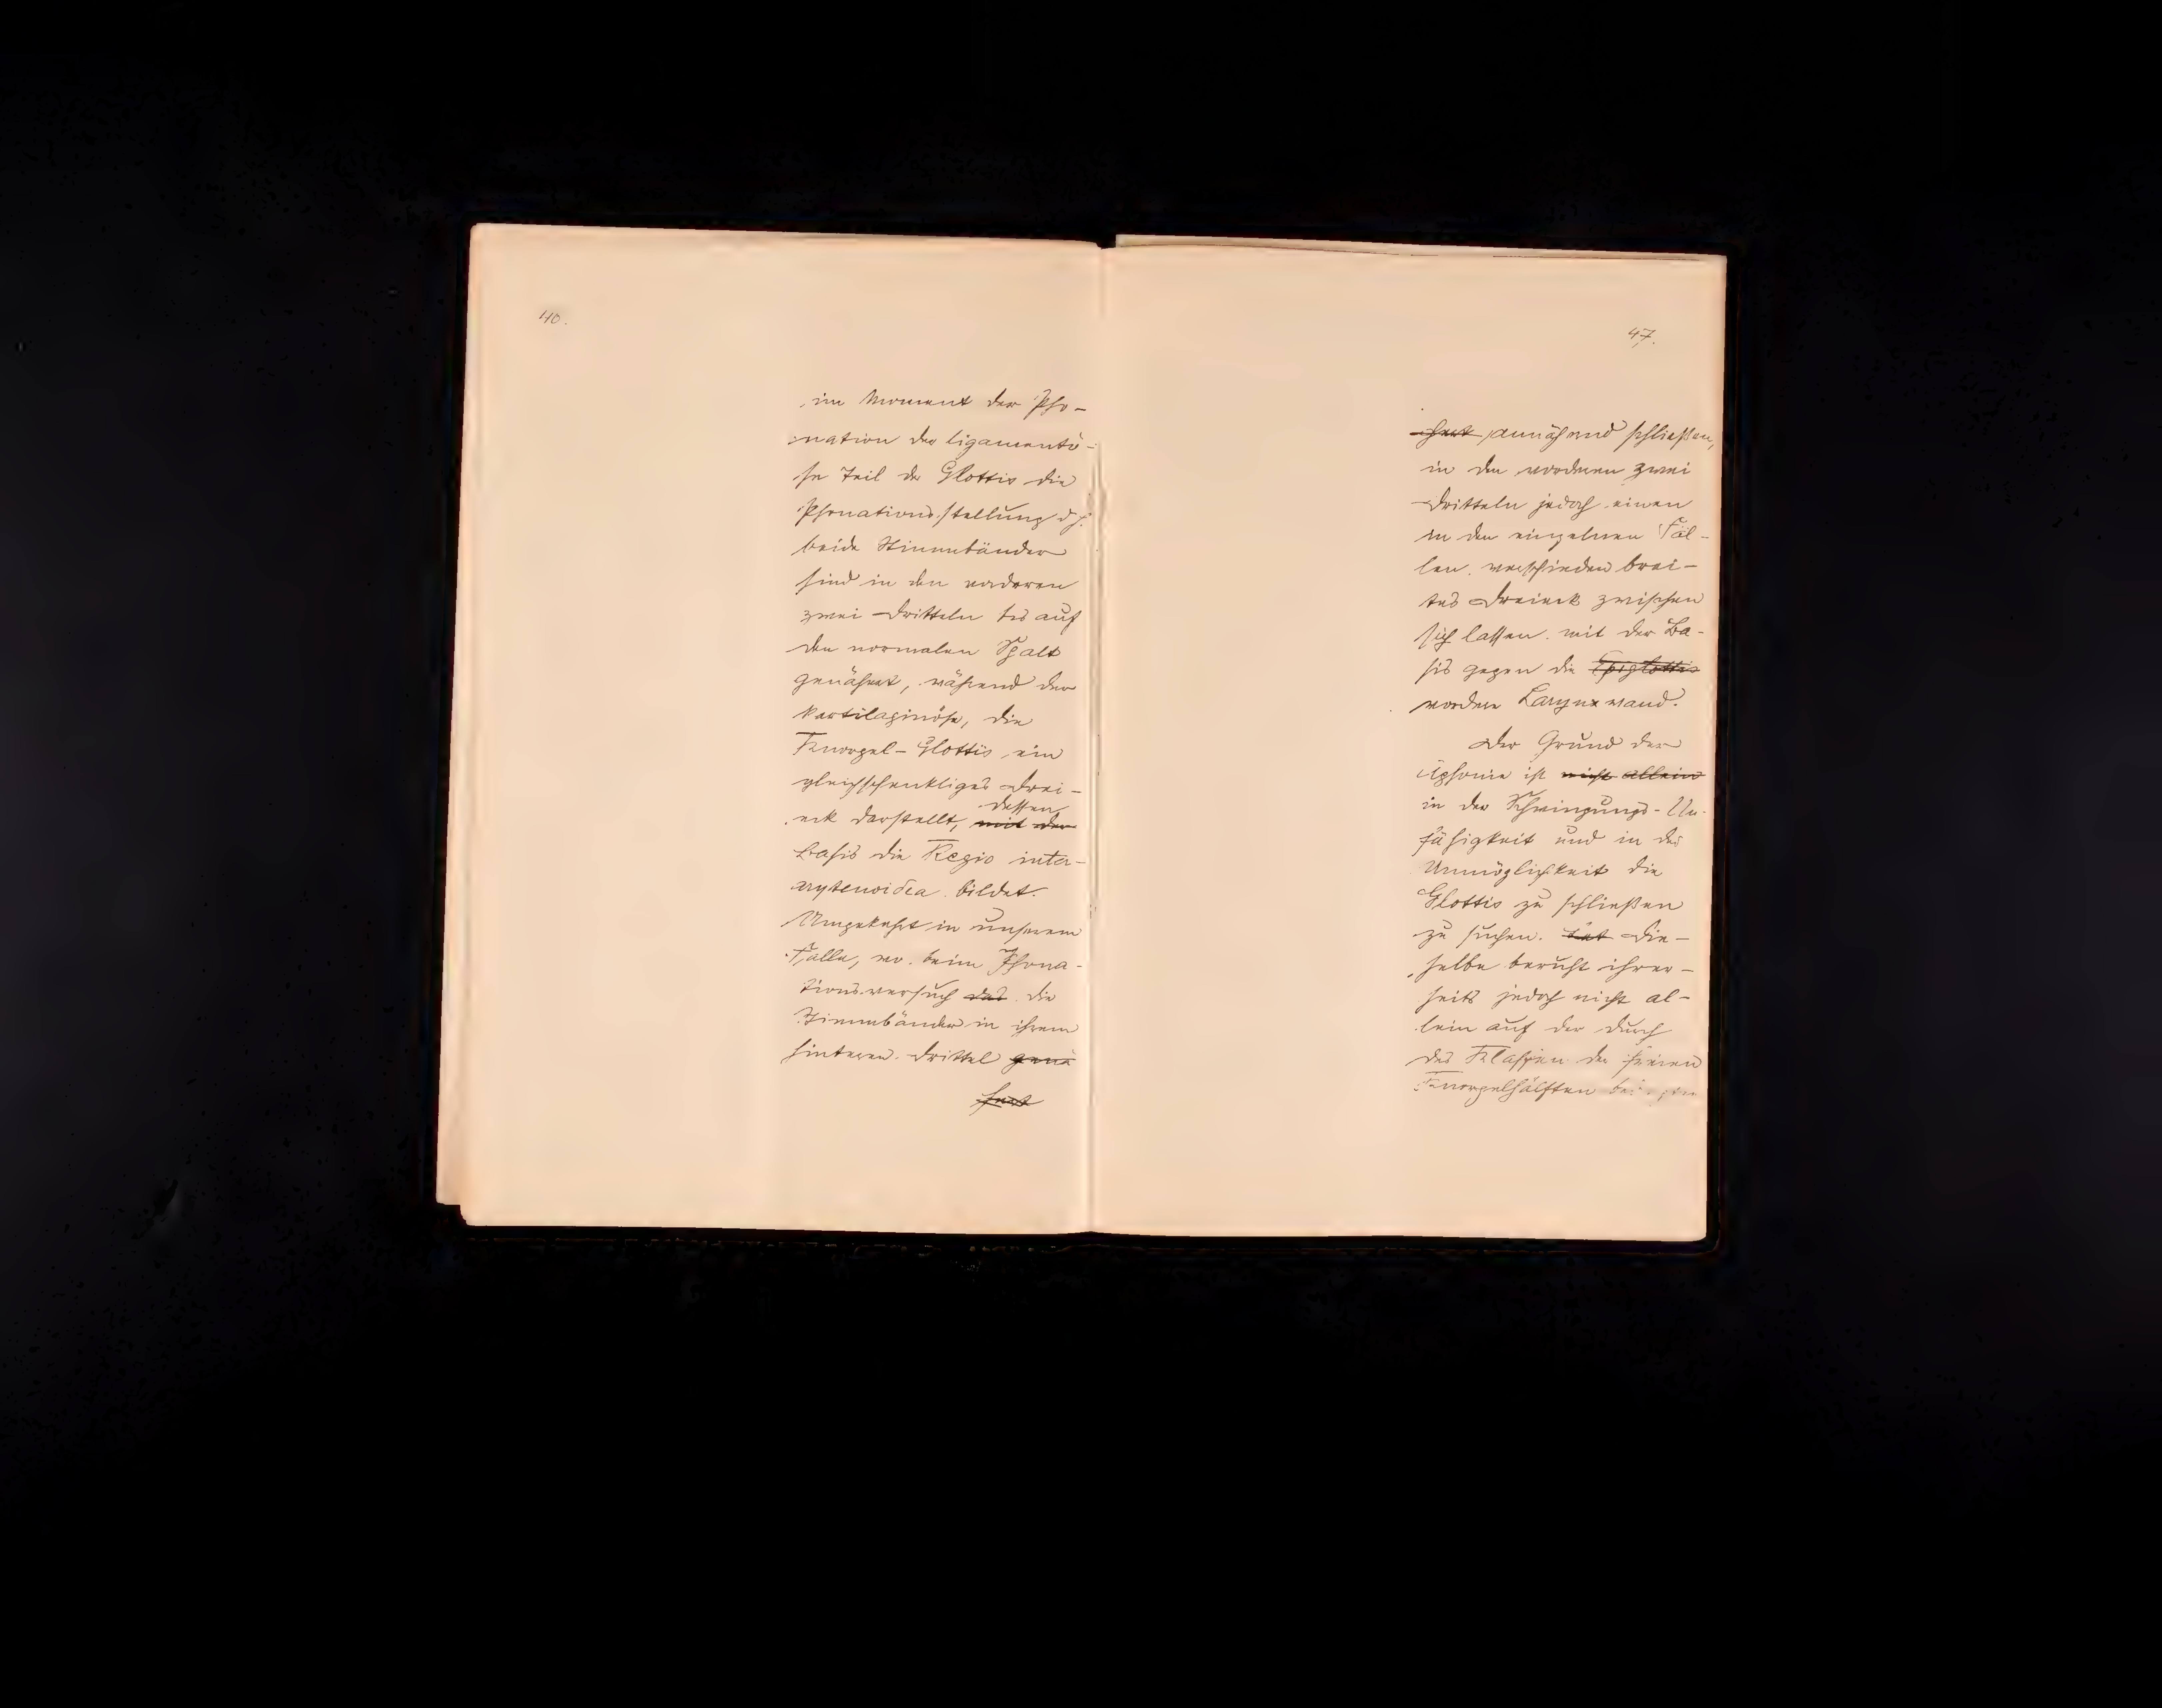 40.
im Moment der Pho-
nation der ligamentö-
se Teil der Glottis die
Phonationsstellung d. h.
beide Stimmbänder
sind in den vorderen
zwei Dritteln bis auf
den normalen Spalt
genähert, während der
kartilaginöse, die
Knorpel-Glottis ein
gleichschenkliges Drei-
dessen
eck darstellt, mit der
Basis die Regio inter-
arytenoidea bildet.
Umgekehrt in unserem
Falle, wo beim Phona-
tionsversuch das die
Stimmbänder in ihrem
hinteren Drittel genä
hert
47.
hert annähernd schließen,
in den vorderen zwei
Dritteln jedoch einen
in den einzelnen Fäl-
len verschieden brei-
tes Dreieck zwischen
sich lassen mit der Ba-
sis gegen die Epiglottis
vordere Larynxwand.
Der Grund der
Aphonie ist nicht allein
in der Schwingungs-Un-
fähigkeit und in der
Unmöglichkeit die
Glottis zu schließen
zu suchen. Die-
selbe beruht ihrer-
seits jedoch nicht al-
lein auf der durch
das Klaffen der freien
Knorpelhälften